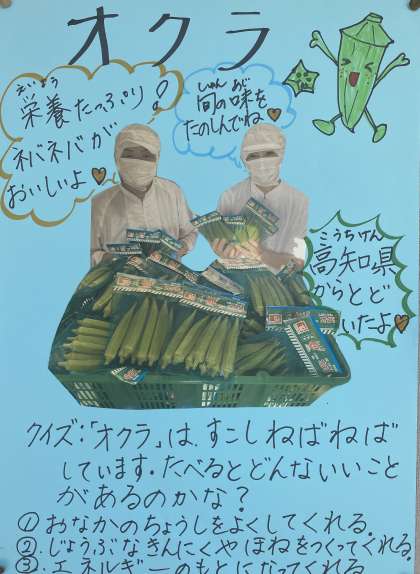 オクラ
えいよう
栄養たっぷり!
ネバネバが
おいしいよ
しゅん あじ
旬の味を
たのしんでね
こうちけん
高知県
からとど
いたよ
クイズ:「オクラ」は、すこしねばねば
しています。たべるとどんないいこと
があるのかな?
①おなかのちょうしをよくしてくれる。
②.じょうぶなきんにくやほねをつくってくれる。
③.エネルギーのもとになってくれる